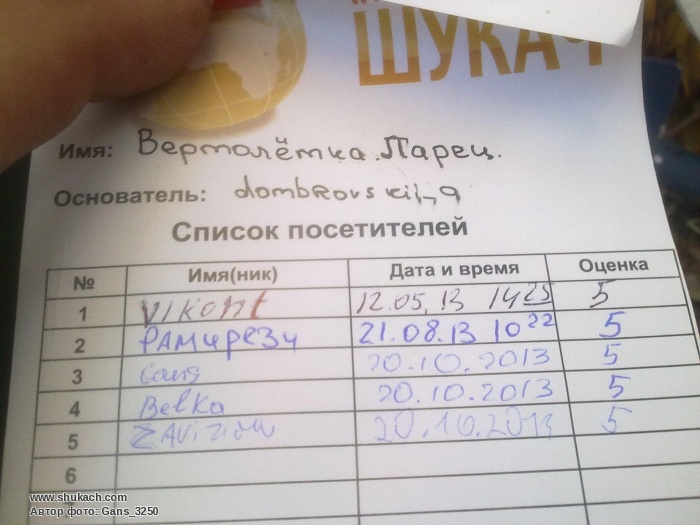 ШУКАЧ
Имя: Вертолётка.Ларец.
Основатель: dombrovskij_9
Список посетителей
№ Имя(ник) Дата и время Оценка
1 Vikont 12.05.13 14 25 5
2 РАМирези 21.08.13 10 22 5
3 Gans 20.10.2013 5
4 Belka 20.10.2013 5
5 20.10.2013 5
6
www.shukach.com
Автор фото: Gans_3250